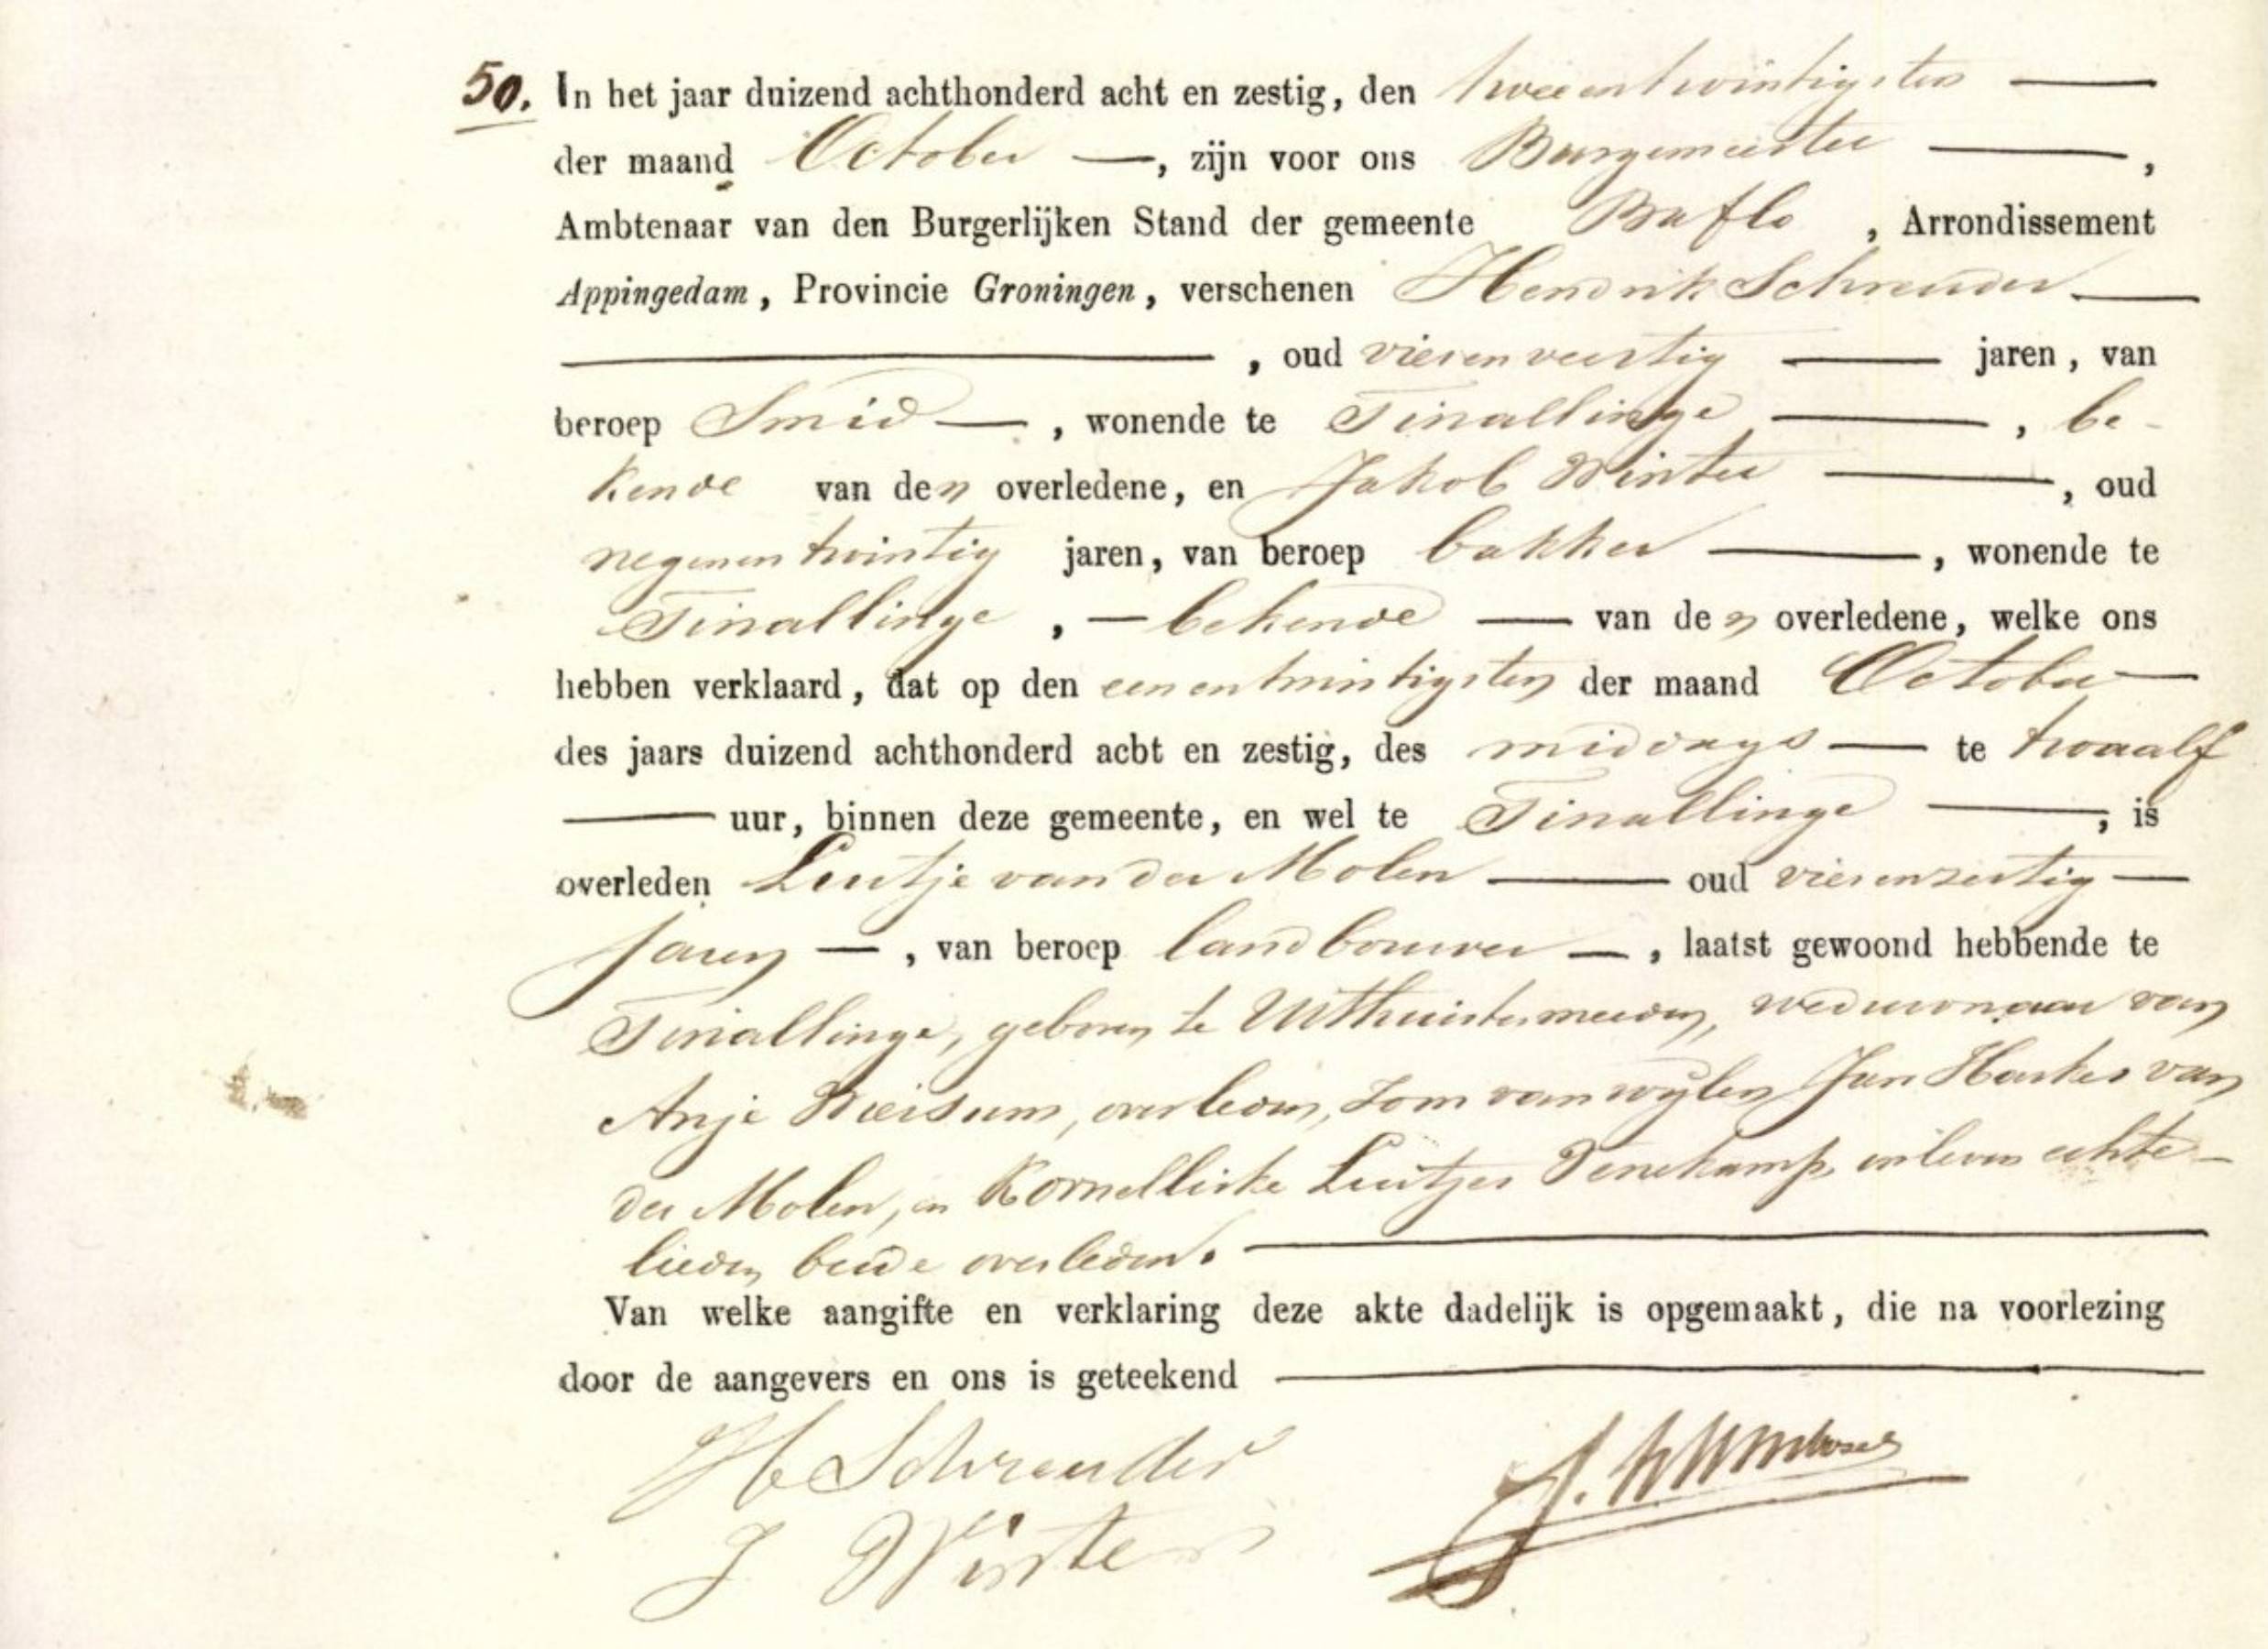 50. In het jaar duizend achthonderd acht en zestig, den tweeentwintigsten
der maand October, zijn voor ons Burgemeester,
Ambtenaar van den Burgerlijken Stand der gemeente Baflo, Arrondissement
Appingedam, Provincie Groningen, verschenen Hendrik Schreuder
, oud vierenveertig jaren, van
beroep Smid, wonende te Tinallinge, be-
kende van den overledene, en Jakob Winter, oud
negenentwintig jaren, van beroep bakker, wonende te
Tinallinge, bekende van den overledene, welke ons
hebben verklaard, dat op den eenentwintigsten der maand October
des jaars duizend achthonderd acht en zestig, des middags te twaalf
uur, binnen deze gemeente, en wel te Tinallinge, is
overleden Luitje van der Molen oud vierenzestig
jaren, van beroep landbouwer, laatst gewoond hebbende te
Tinallinge, geboren te Uithuistermeeden, weduwnaar van
Anje Wiersum, overleden, zoon van wijlen Jan Harkes van
der Molen, en Kornelliske Luitjes Denekamp, in leven echte-
lieden, beide overleden.
Van welke aangifte en verklaring deze akte dadelijk is opgemaakt, die na voorlezing
door de aangevers en ons is geteekend
H Schreuder
J Winter